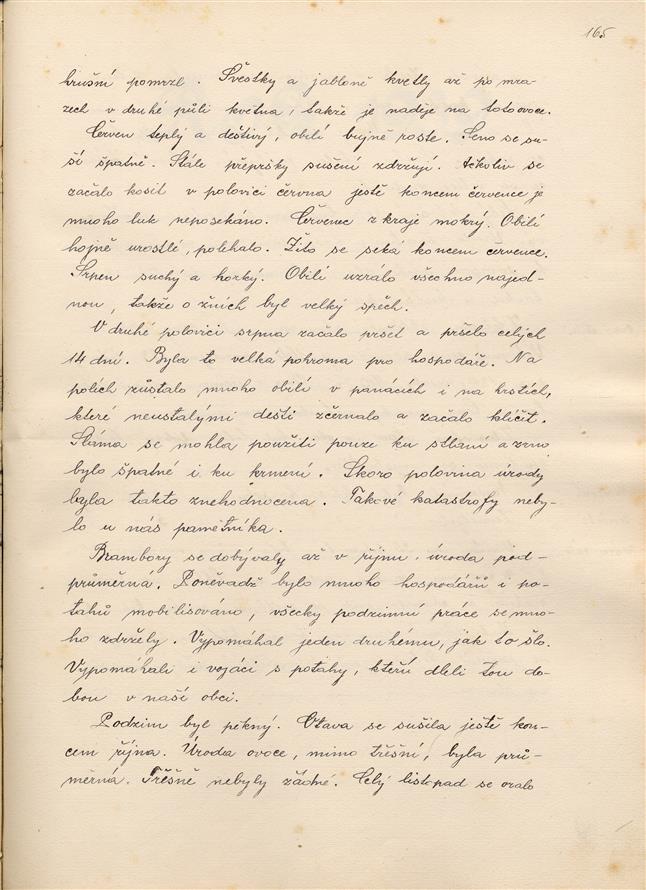 165
hrušní pomrzl. Švestky a jabloně kvetly až po mra-
zech v druhé půli května, takže je naděje na toto ovoce.
Červen teplý a deštivý, obilí bujně roste. Seno se su-
ší špatně. Stále přepršky sušení zdržují. Ačkoliv se
začalo kosit v polovici června ještě koncem července je
mnoho luk neposekáno. Červenec z kraje mokrý. Obilí
hojně urostlé, polehalo. Žito se seká koncem července.
Srpen suchý a horký. Obilí uzrálo všechno najed-
nou, takže o žních byl velký spěch.
V druhé polovici srpna začalo pršet a pršelo celých
14 dní. Byla to velká pohroma pro hospodáře. Na
polích zůstalo mnoho obilí v panácích i na hrstích,
které neustalými dešti zčernalo a začalo klíčit.
Sláma se mohla použíti pouze ku stlaní a zrno
bylo špatné i ku krmení. Skoro polovina úrody
byla takto znehodnocena. Takové katastrofy neby-
lo u nás pamětníka.
Brambory se dobývaly až v říjnu, úroda pod-
průměrná. Poněvadž bylo mnoho hospodářů i po-
tahů mobilisováno, všecky podzimní práce se mno-
ho zdržely. Vypomáhal jeden druhému, jak to šlo.
Vypomáhali i vojáci s potahy, kteří dleli tou do-
bou v naší obci.
Podzim byl pěkný. Otava se sušila ještě kon-
cem října. Úroda ovoce, mimo třešní, byla prů-
měrná. Třešně nebyly žádné. Celý listopad se oralo